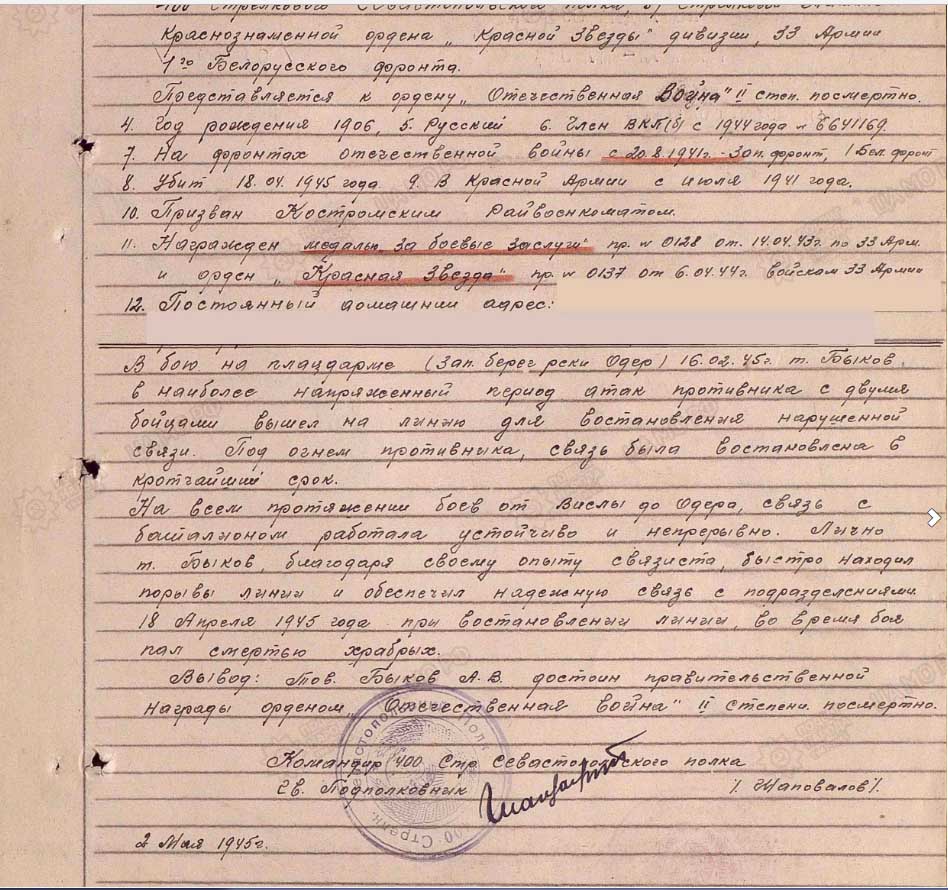 400 Стрелкового Севастопольского полка,
Краснознаменной ордена „Красной Звезды" дивизии, 33 Армии
1го Белорусского фронта.
Представляется к ордену „Отечественная Война" II степ. посмертно.
4. Год рождения 1906, 5. Русский 6. Член ВКП(б) с 1944 года № 6641169.
7. На фронтах отечественной войны с 20.8.1941г. - Зап. фронт, 1 Бел. фронт
8. Убит 18.04.1945 года 9. В Красной Армии с июля 1941 года.
10. Призван Костромским Райвоенкоматом.
11. Награжден медалью „За боевые заслуги" пр. № 0128 от 14.04.43г. по 33 Арм.
и орден „Красная Звезда" пр. № 0137 от 6.04.44г. войскам 33 Армии
12. Постоянный домашний адрес:
В бою на плацдарме (Зап. берег реки Одер) 16.02.45г. т. Быков,
в наиболее напряженный период атак противника с двумя
бойцами вышел на линию для востановления нарушенной
связи. Под огнем противника, связь была востановлена в
кротчайший срок.
На всем протяжении боев от Вислы до Одера, связь с
баталионом работала устойчиво и непрерывно. Лично
т. Быков, благодаря своему опыту связиста, быстро находил
порывы линии и обеспечил надежную связь с подразделениями.
18 Апреля 1945 года при востановлении линии, во время боя
пал смертью храбрых.
Вывод: Тов. Быков А.В. достоин правительственной
награды орденом „Отечественная война" II степени посмертно.
Командир 400 Стр Севастопольского полка
Гв. Подполковник / Шаповалов /.
2 Мая 1945г.